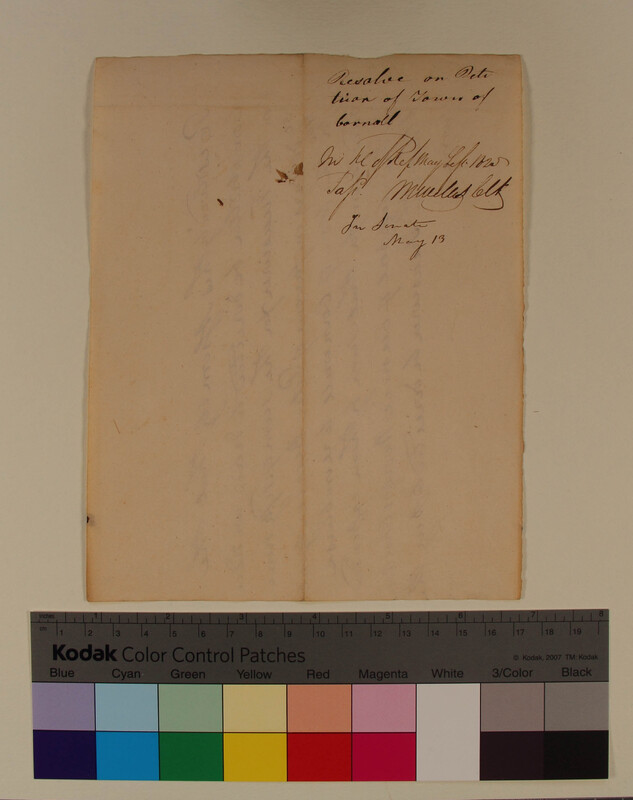 Resolve on Peti
tion of Town of
Cornall
In H. of Rep. May Sess. 1825
Pass'd. Clk
In Senate
May 13
inches 1 2 3 4 5 6 7 8
cm 1 2 3 4 5 6 7 8 9 10 11 12 13 14 15 16 17 18 19
Kodak Color Control Patches
© Kodak, 2007 TM: Kodak
Blue Cyan Green Yellow Red Magenta White 3/Color Black